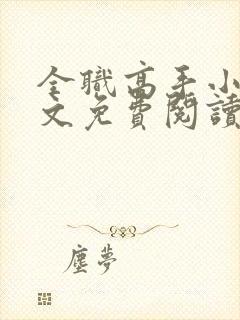 全職高手小
文免費閱讀
塵夢